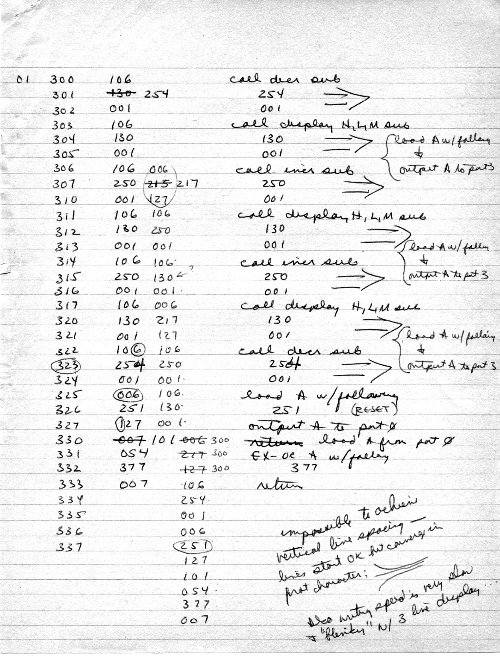 01 300 106 call decr sub
301 130 254 254
302 001 001
303 106 call display H,L,M sub
304 130 130 load A w/following
305 001 001
306 106 006 call incr sub output A to port 3
307 250 215 217 250
310 001 127 001
311 106 106 call display H,L,M sub
312 130 250 130
313 001 001 001 load A w/follow
314 106 106 call incr sub
315 250 130 ? 250 output A to port 3
316 001 001 001
317 106 006 call display H,L,M sub
320 130 217 130
321 001 127 001 load A w/following
322 106 106 call decr sub
323 254 250 254 output A to port 3
324 001 001 001
325 006 106 load A w/following
326 251 130 251 (RESET)
327 127 001 output A to port Ø
330 007 101 006 300 return load A from port Ø
331 054 217 300 EX-OR A w/following
332 377 127 300 377
333 007 106 return
334 254
335 001
336 006
337 251
127
101
054
377
007
impossible to achieve
vertical line spacing —
lines start OK but converge in
first character;
Also writing speed is very slow
+ "blinky" w/ 3 line display...